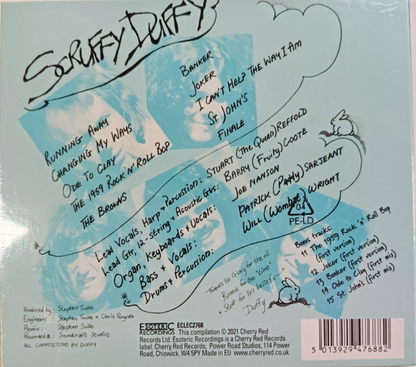 SCRUFFY DUFFY
RUNNING AWAY
CHANGING MY WAYS
ODE TO CLAY
THE 1959 ROCK 'N' ROLL BOP
THE BROWNS
BANKER
JOKER
I CAN'T HELP THE WAY I AM
ST JOHN'S
FINALE
Lead Vocals, Harp & Percussion: STUART (The Quod) REFFOLD
Lead Gtr, 12-string & Acoustic Gtrs: BARRY (Fruity) COOTE
Organ, Keyboards & Vocals: JOE NANSON
Bass & Vocals: PATRICK (Patty) SARJEANT
Drums & Percussion: WILL (Wombat) WRIGHT
04
PE-LD
Bonus tracks:
11 The 1959 Rock 'n' Roll Bop
(first version)
12 Joker (first version)
13 Banker (first version)
14 Ode to Clay (first mix)
15 St. John's (first mix)
Thanks to Gerry for the
Ronnie for the
Duffy
Produced by: Stephen
Engineers: Stephen & Chris
Remix: Stephen
Recorded at: Studios
ALL COMPOSITIONS BY DUFFY
ESOTERIC
RECORDINGS
ECLEC2768
This compilation © 2021 Cherry Red
Records Ltd. Esoteric Recordings is a Cherry Red Records
label. Cherry Red Records, Power Road Studios, 114 Power
Road, Chiswick, W4 5PY Made in EU www.cherryred.co.uk
5 013929 476882